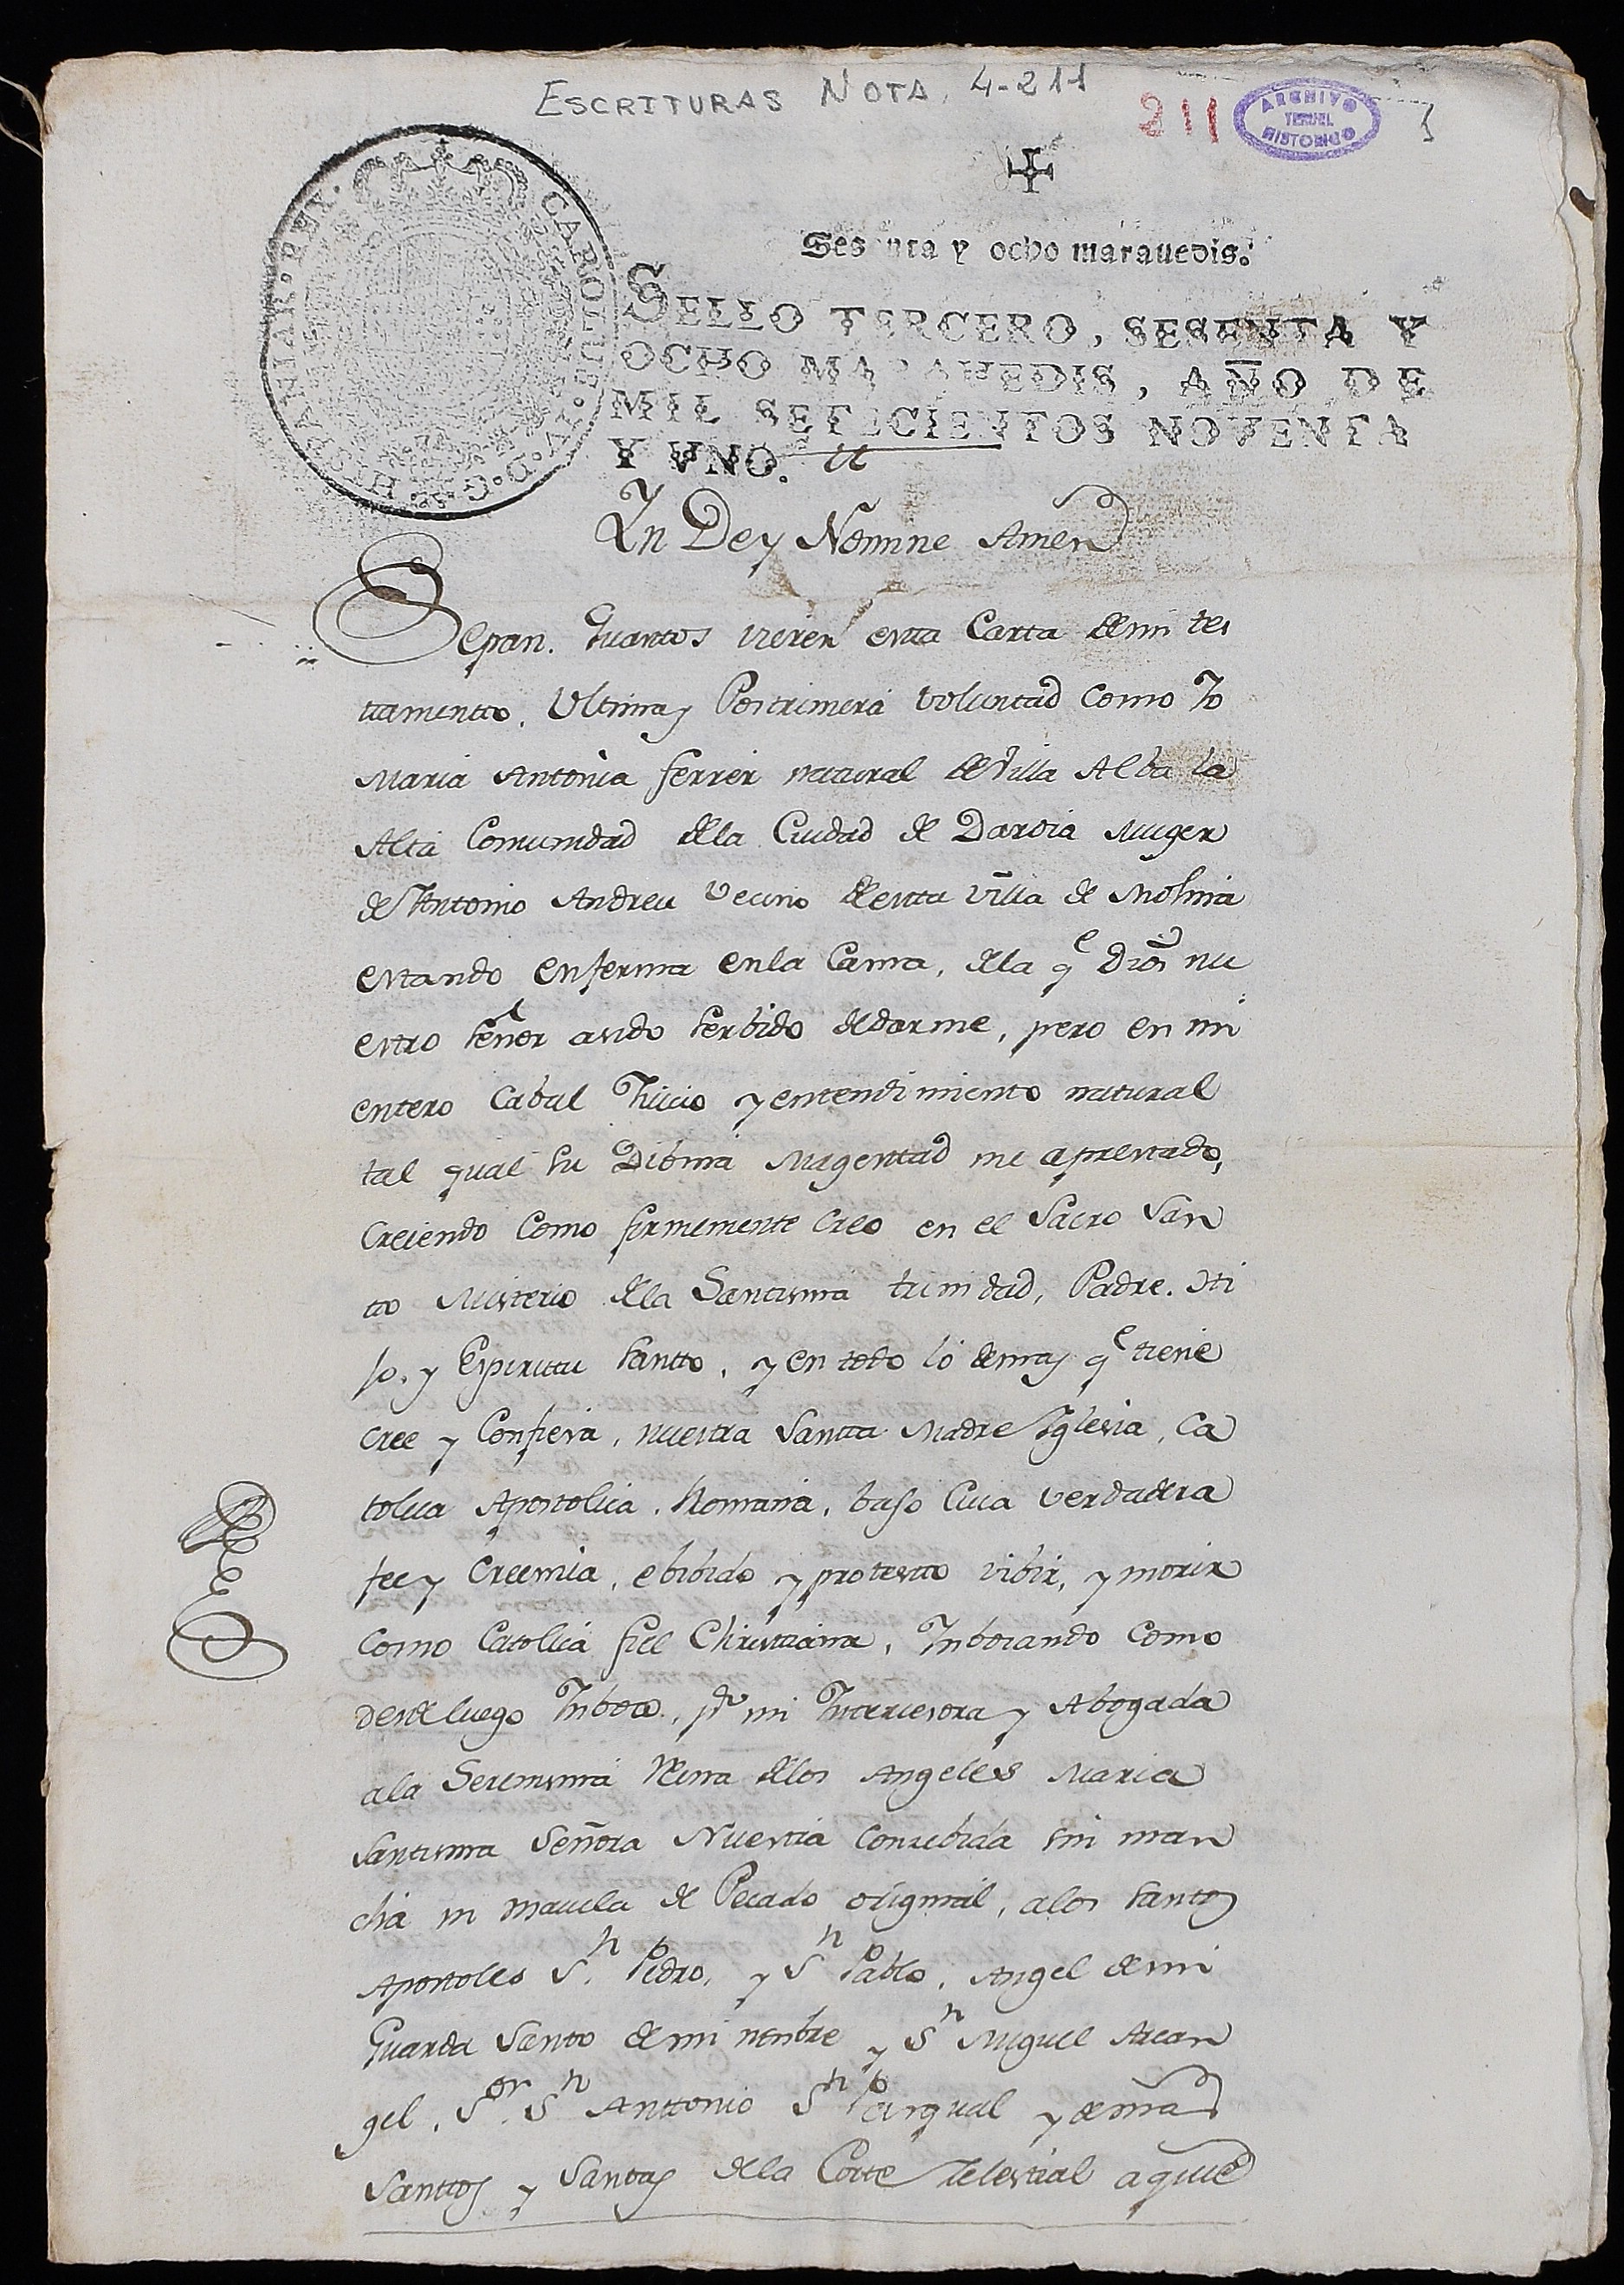 ESCRITURAS NOTA. 4-211
211
ARCHIVO
TERUEL
HISTORICO
CAROLUS. IV. D. G. HISPANIAR. REX.
Sesenta y ocho maravedis.
SELLO TERCERO, SESENTA Y
OCHO MARAVEDIS, AÑO DE
MIL SETECIENTOS NOVENTA
Y VNO.
Yn Dey Nomine Amen
Sepan. Quantos vieren esta Carta demi tes
tamento. Ultima y Postrimera Voluntad Como Yo
Maria Antonia ferrer natural de Villa Alba la
Alta Comunidad dela Ciudad de Daroca Muger
de Antonio Andreu Vecino de esta Villa de Molina
estando enferma enla Cama, dela qe Dios nu
estro señor asido serbido de darme, pero en mi
entero Cabal Juicio y entendimiento natural
tal qual su Dibina Magestad me aprestado,
Creiendo Como firmemente Creo en el Sacro San
to Misterio dela Santisima trinidad, Padre. Hi
jo. y Espiritu santto, y en todo lo demas qe tiene
cree y Confiesa, nuestra Santta Madre Yglesia, Ca
tolica Apostolica. Romana, bajo Cuia verdadera
fee y Creencia, e bibido y protesto vibir, y morir
Como Catolica fiel Christiana, Ynbocando Como
desde luego Ynboco, pr mi Yntercesora y Abogada
ala Serenisima Reina delos Angeles Maria
Santisima Señora Nuestra Concebida sin man
cha ni macula de Pecado original, alos santos
Apostoles Sn Pedro, y Sn Pablo, Angel demi
Guarda Santo de mi nonbre y Sn Miguel Arcan
gel, Sor Sn Anttonio Sn Pasqual y demas
Santtos y Santas dela Corte Zelestial aquie